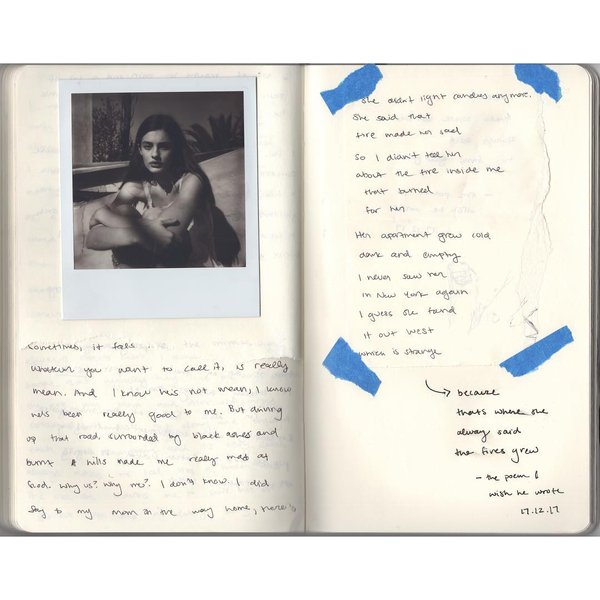 Sometimes, it feels
whatever you want to call it, is really
mean. And I know he's not mean, I know
he's been really good to me. But driving
up that road, surrounded by black ashes and
burnt hills made me really mad at
God. Why us? Why me? I don't know. I did
say to my mom on the way home,
She didn't light candles anymore.
She said that
fire made her sad
So I didn't tell her
about the fire inside me
that burned
for her
Her apartment grew cold
dark and empty
I never saw her
in New York again
I guess she found
it out west
which is strange
because
thats where she
always said
the fires grew
- the poem I
wish he wrote
17.12.17